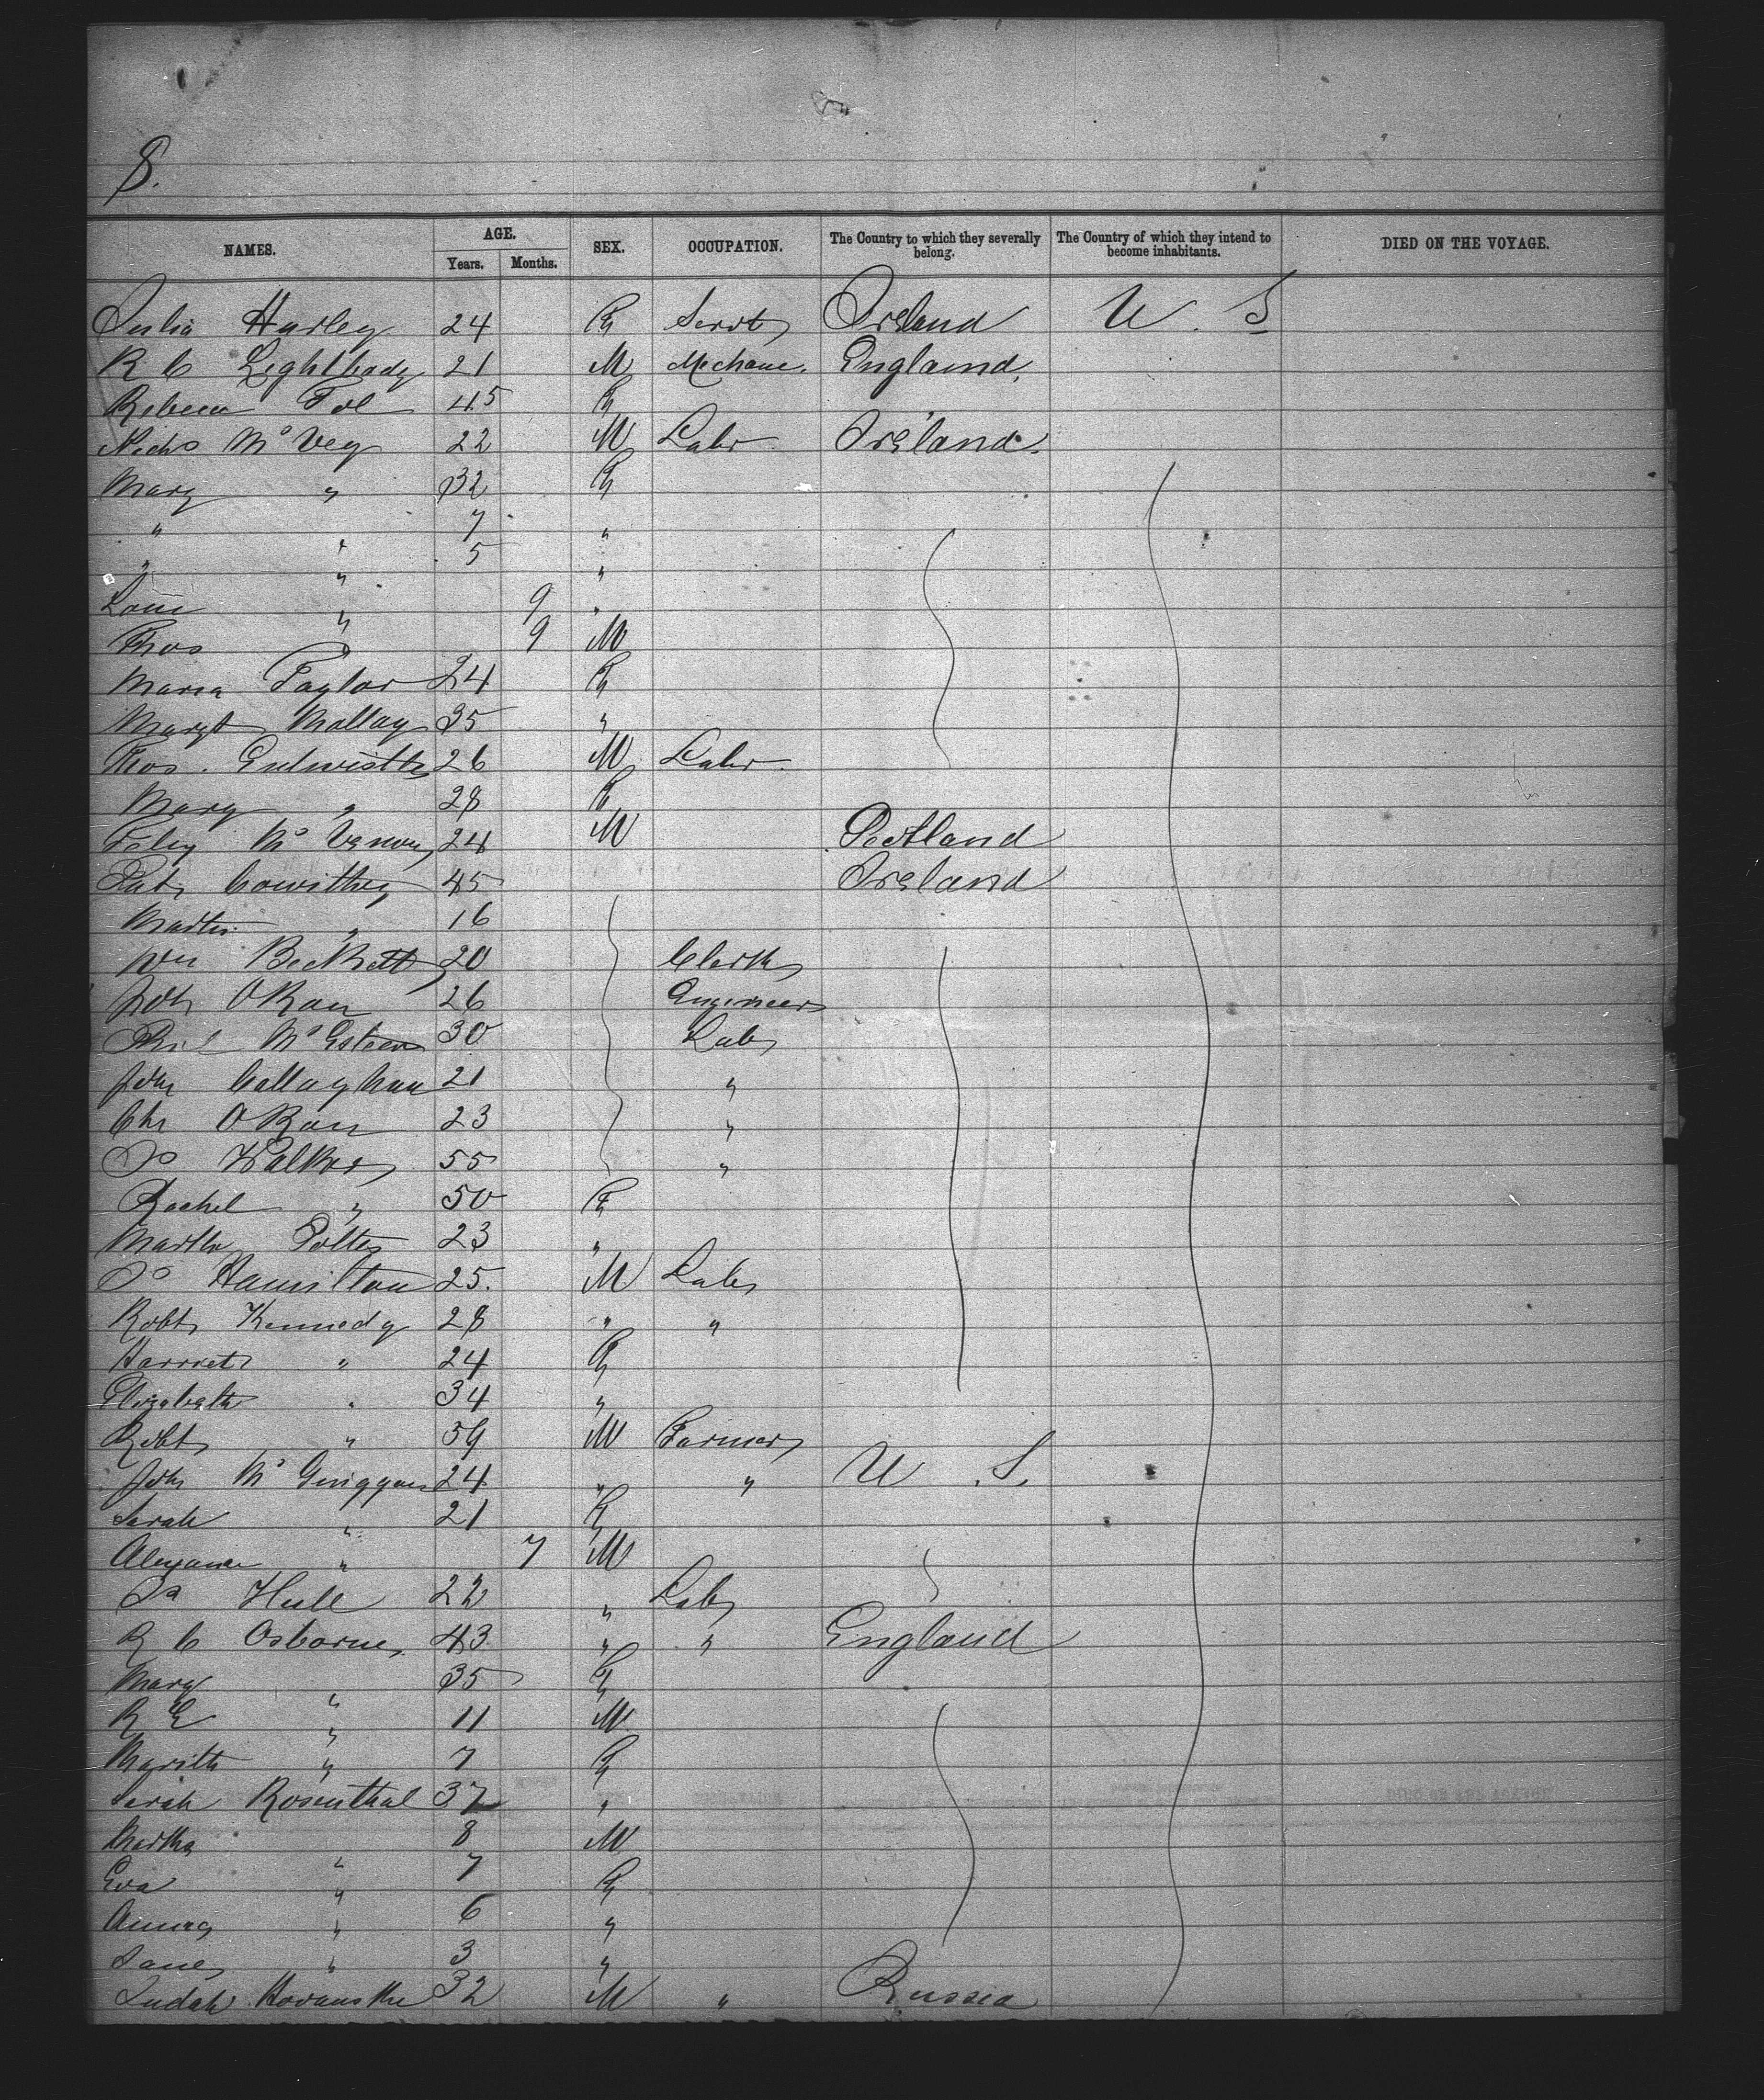 8.
NAMES. AGE. SEX. OCCUPATION. The Country to which they severally belong. The Country of which they intend to become inhabitants. DIED ON THE VOYAGE.
Years. Months.
Julia Hurley 24 F Servt Ireland U. S
R C Lightbody 21 M Mechanc. England.
Rebecca 45 F
Nichs McVey 22 M Labr Ireland.
Mary " 32 F
" " 7 "
" " 5 "
" 9 "
Thos " 9 M
Maria Taylor 24 F
Margt Mallay 35 "
Thos. 26 M Labr.
Mary " 28 F
Mc 24 M Scotland
Patk 45 Ireland
Martin " 16
Wm Beckett 20 Clerk
Joh O'Kan 26 Engineer
Mc 30 Lab
Joh Callaghan 21 "
Chr O'Kan 23 "
Walker 55 "
Rachel " 50 F
Martha 23 "
Hamilton 25. M Lab
Robt Kennedy 28 " "
Harriet " 24 F
Elizabeth " 34 "
Robt " 59 M Farmer
Joh McGuiggan 24 " " U S.
Sarah " 21 F
" 7 M
Hull 22 " Lab
R C Osborne 43 " " England
Mary " 35 F
R E " 11 M
" 7 F
Sarah Rosenthal 37 "
Martha " 8 M
Eva " 7 F
" 6 "
Jane " 3 "
Judah 32 M " Russia